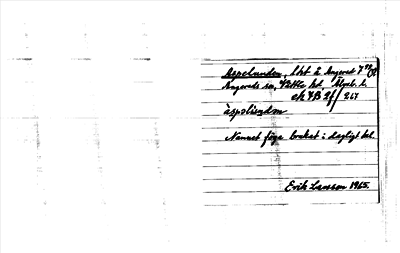 Aspelunden, lht å Angered 7
Angereds sn, Vättle hd, Älvsb. l.
ek 7B 2f/267
äspolúndən
Namnet föga brukat i dagligt tal.
Erik Larsson 1965.